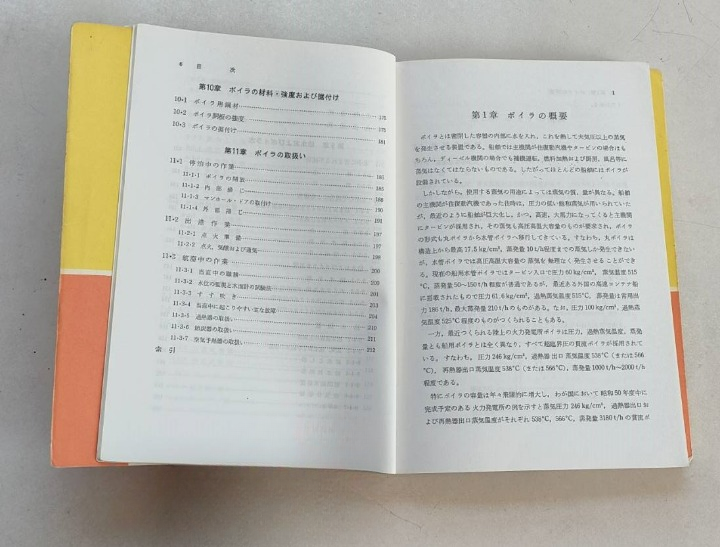 6 目 次
第10章 ボイラの材料・強度および据付け
10・1 ボイラ用鋼材 175
10・2 ボイラ胴板の強度 175
10・3 ボイラの据付け 181
第11章 ボイラの取扱い
11・1 停泊中の作業
11-1-1 ボイラの開放
11-1-2 内面掃じ
11-1-3 マンホール・ドアの取付け
11-1-4 外面掃じ
11・2 出港作業
11-2-1 点火準備
11-2-2 点火,気醸および通気
11・3 航海中の作業
11-3-1 当直中の職務
11-3-2 水位の監視と水面計の試験法
11-3-3 すす吹き
11-3-4 当直中に起こりやすい主な故障
11-3-5 過熱器の取扱い
11-3-6 節炭器の取扱い 211
11-3-7 空気予熱器の取扱い 212
索 引
1
第1章 ボイラの概要
ボイラとは密閉した容器の内部に水を入れ,これを熱して大気圧以上の蒸気
を発生させる装置である。船舶では主機関が往復動汽機やタービンの場合はも
ちろん,ディーゼル機関の場合でも補機運転,燃料加熱および厨房,風呂等に
蒸気はなくてはならないものである。したがってほとんどの船舶にはボイラが
設備されている。
しかしながら,使用する蒸気の用途によっては蒸気の質,量が異なる。船舶
の主機関が往復動汽機であった往時は,圧力の低い飽和蒸気が用いられていた
が,最近のように船舶が巨大化し,かつ,高速,大馬力になってくると主機関
にタービンが採用され,その蒸気も高圧高温大容量のものが要求され,ボイラ
の形式も丸ボイラから水管ボイラへ移行してきている。すなわち,丸ボイラは
構造上から最高 17.5 kg/cm², 蒸発量 10 t/h程度までの蒸気しか発生できない
が,水管ボイラでは高圧高温大容量の蒸気を無理なく発生させることができ
る。現在の船用水管ボイラではタービン入口で圧力 60 kg/cm², 蒸気温度 515
℃, 蒸発量 50〜150 t/h 程度が普通であるが,最近ある外国の高速コンテナ船
に搭載されたもので圧力 61.6 kg/cm², 過熱蒸気温度515℃, 蒸発量は常用出
力 186 t/h, 最大蒸発量 210 t/hのものがある。なお,圧力 100 kg/cm², 過熱蒸
気温度 525℃ 程度のものがつくられることもある。
一方,最近つくられる陸上の火力発電所ボイラは圧力,過熱蒸気温度,蒸発
量とも船用ボイラとは全く異なり,すべて超臨界圧の貫流ボイラが採用されて
いる。すなわち,圧力 246 kg/cm², 過熱器出口蒸気温度 538℃(または 566
℃), 再熱器出口蒸気温度 538℃(または566℃), 蒸発量 1000 t/h〜2000 t/h
程度である。
特にボイラの容量は年々飛躍的に増大し,わが国において昭和50年度中に
完成予定のある火力発電所の例を示すと蒸気圧力 246 kg/cm², 過熱器出口お
よび再熱器出口蒸気温度がそれぞれ 538℃, 566℃, 蒸発量 3180 t/h の貫流ボ